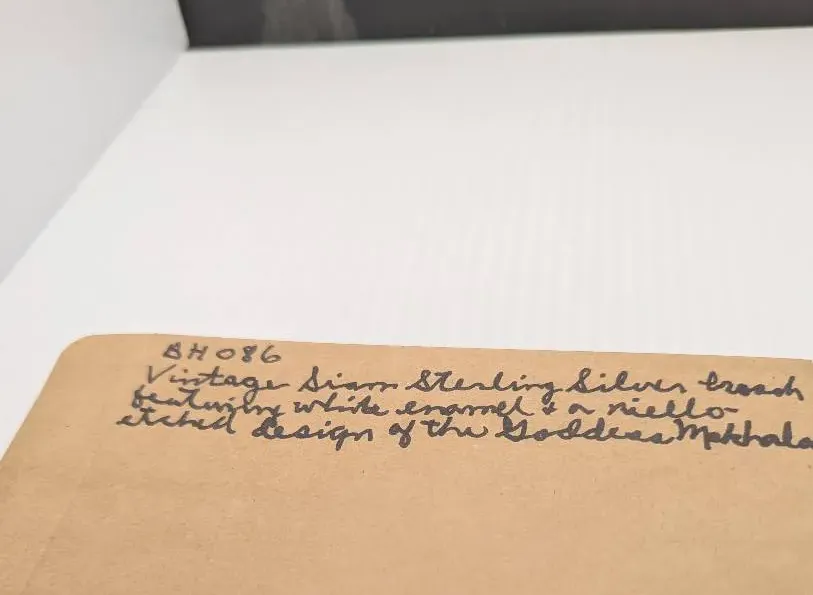 BH086
Vintage Siam Sterling Silver broach
featuring white enamel & a niello-
etched design of the Goddess Mekhala